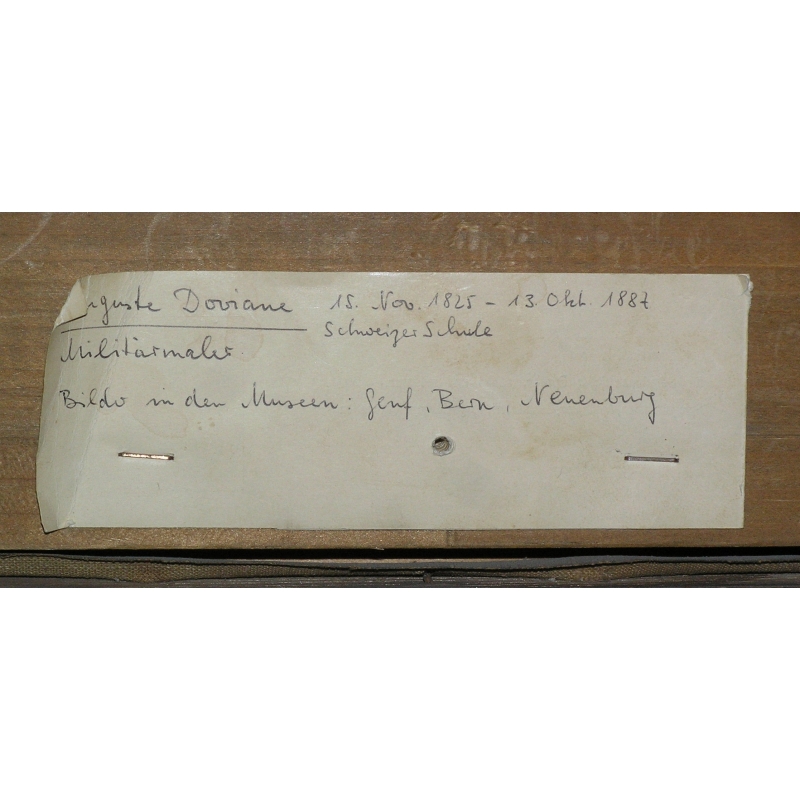 Auguste Doviane 15. Nov. 1825 - 13. Okt. 1887
Schweizer Schule
Militärmaler
Bilder in den Museen: Genf, Bern, Neuenburg